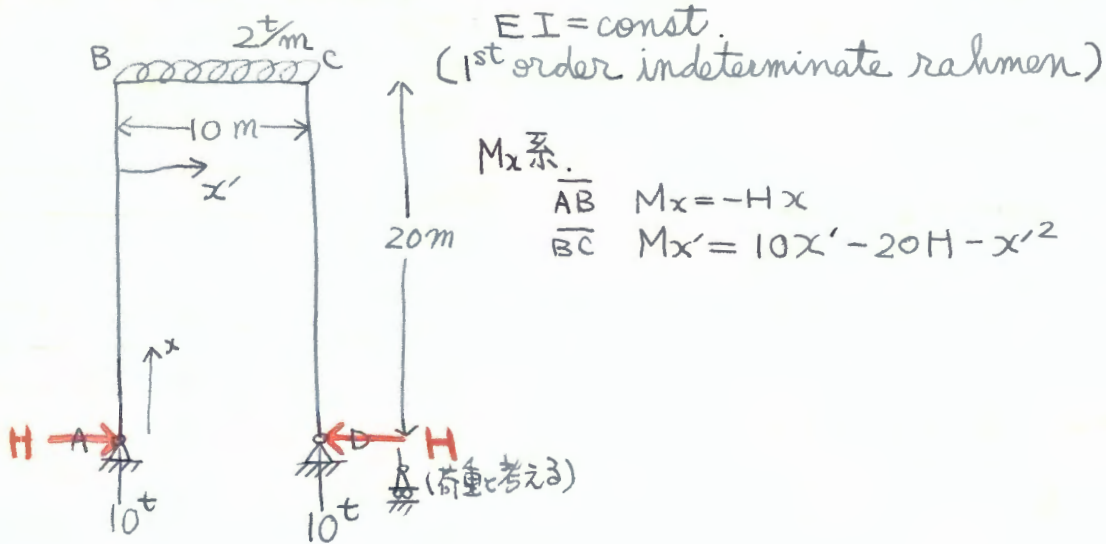 EI=const.
(1st order indeterminate rahmen)
2t/m
B
C
10 m
x'
Mx系.
AB Mx=-Hx
BC Mx'=10x'-20H-x'²
20m
x
H
A
D
H
(荷重と考える)
10t
10t